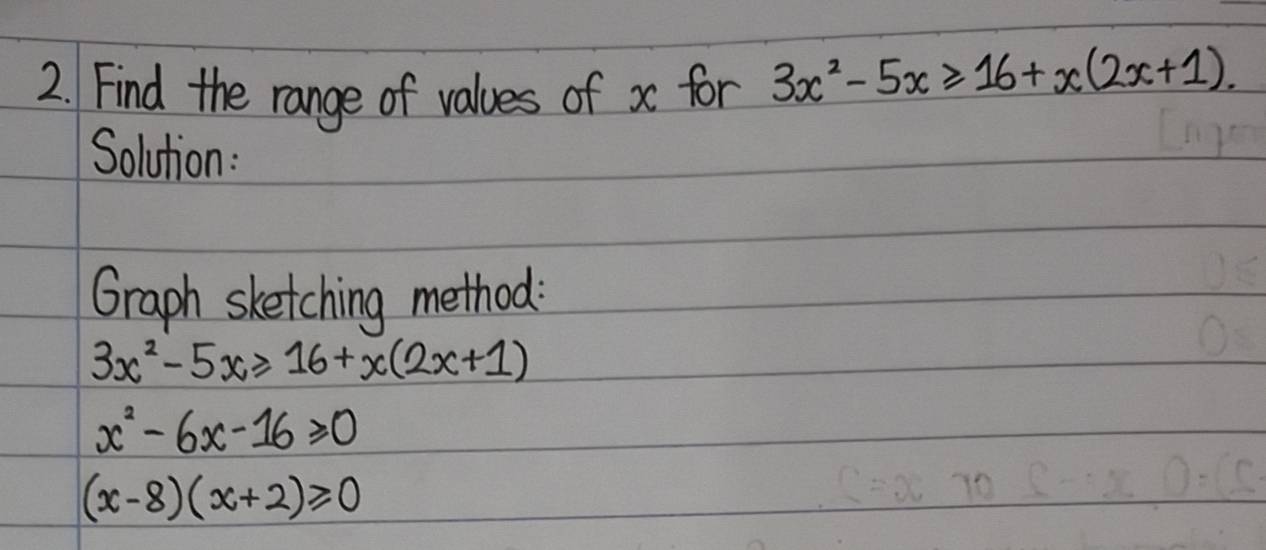 2. Find the range of values of x for 3x² - 5x ≥ 16 + x(2x+1).
Solution:
Graph sketching method:
3x² - 5x ≥ 16 + x(2x+1)
x² - 6x - 16 ≥ 0
(x-8)(x+2) ≥ 0